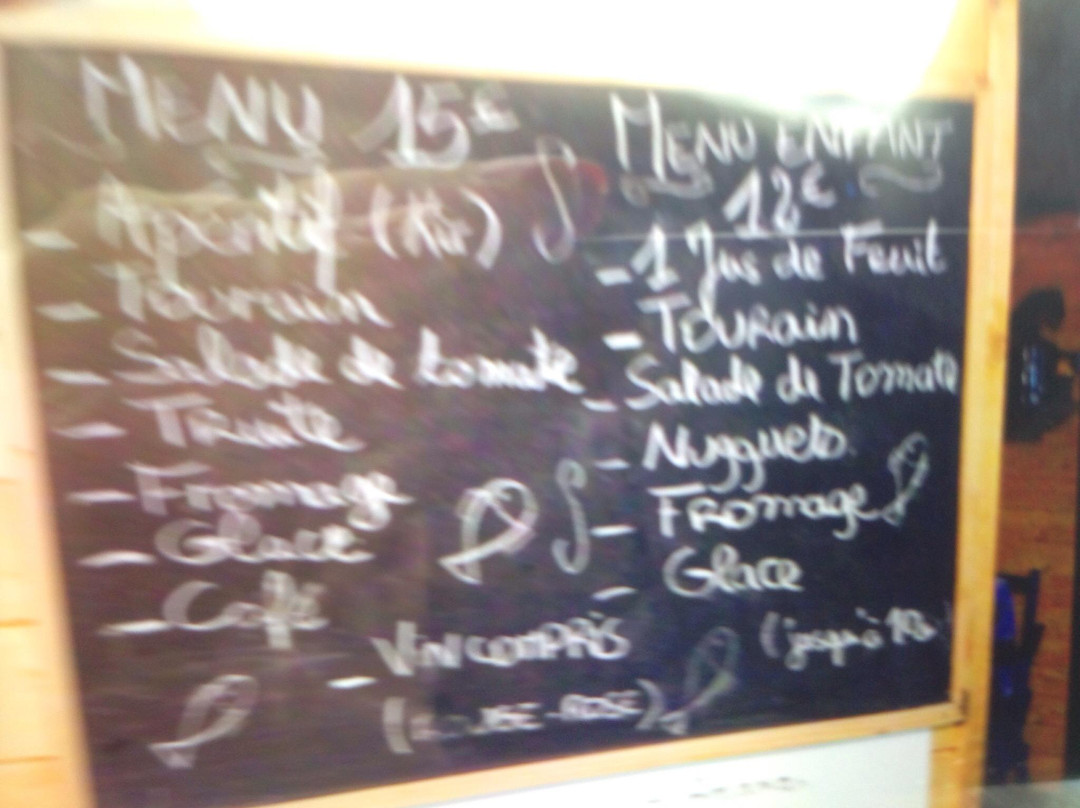 MENU 15€
- Apéritif (Kir)
- Tourain
- Salade de tomate
- Truite
- Fromage
- Glace
- Café
- VIN COMPRIS
(ROUGE-ROSE)
MENU ENFANT
12€
- 1 Jus de Feuit
- TOURain
- Salade de Tomate
- Nugguets
- FRomage
- Glace
(jusqu'à